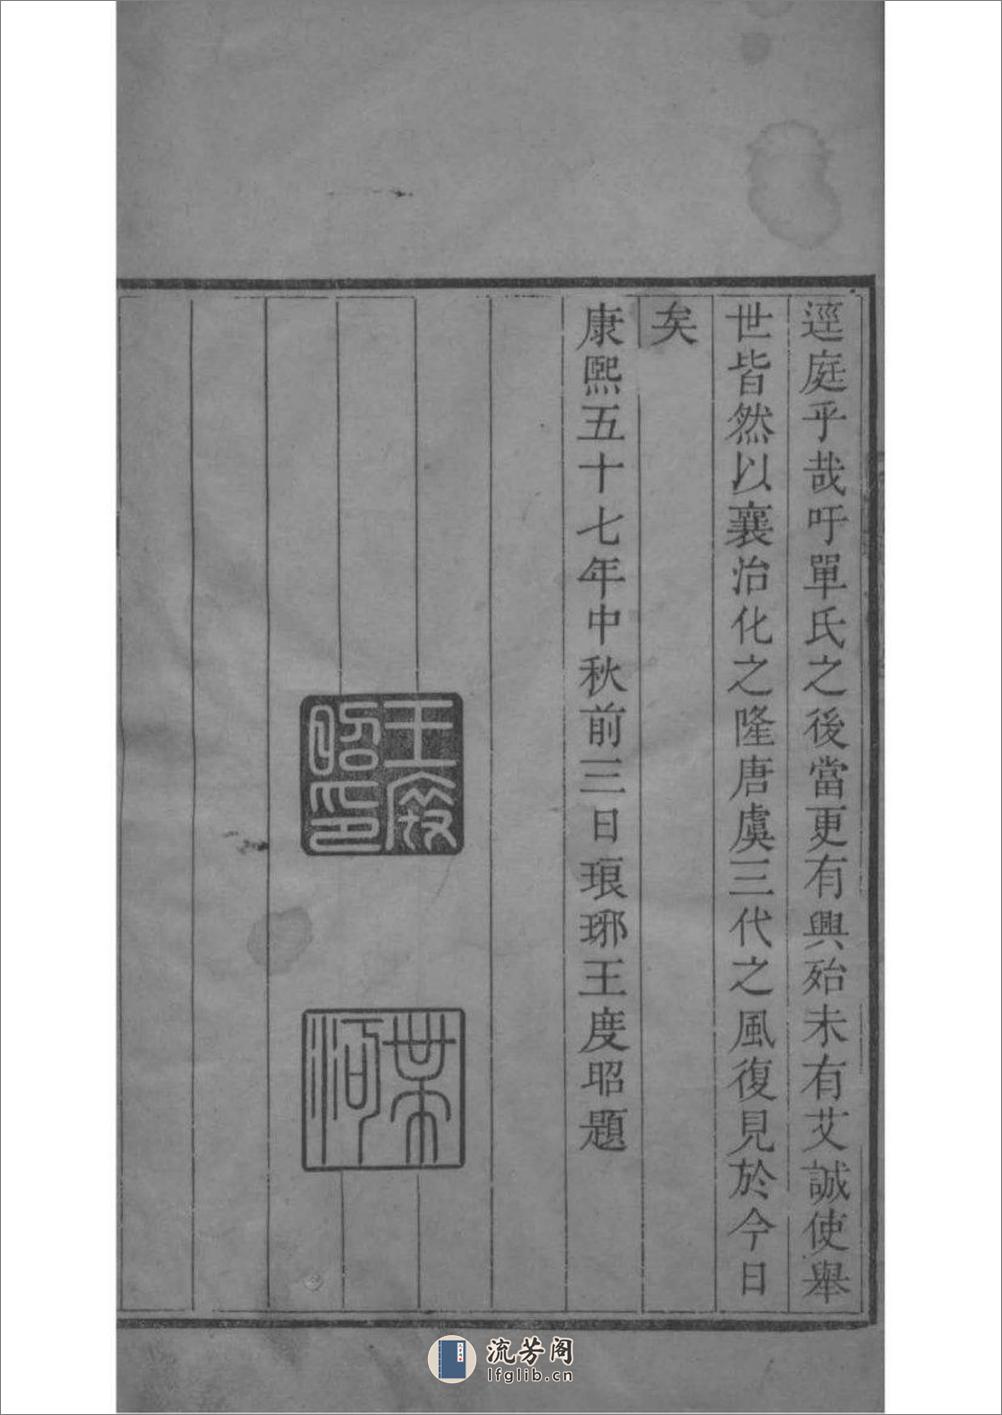 逕庭乎哉吁單氏之後當更有興殆未有艾誠使舉
世皆然以襄治化之隆唐虞三代之風復見於今日
矣
康熙五十七年中秋前三日琅琊王度昭題
王度昭印
流芳阁
lfglib.cn